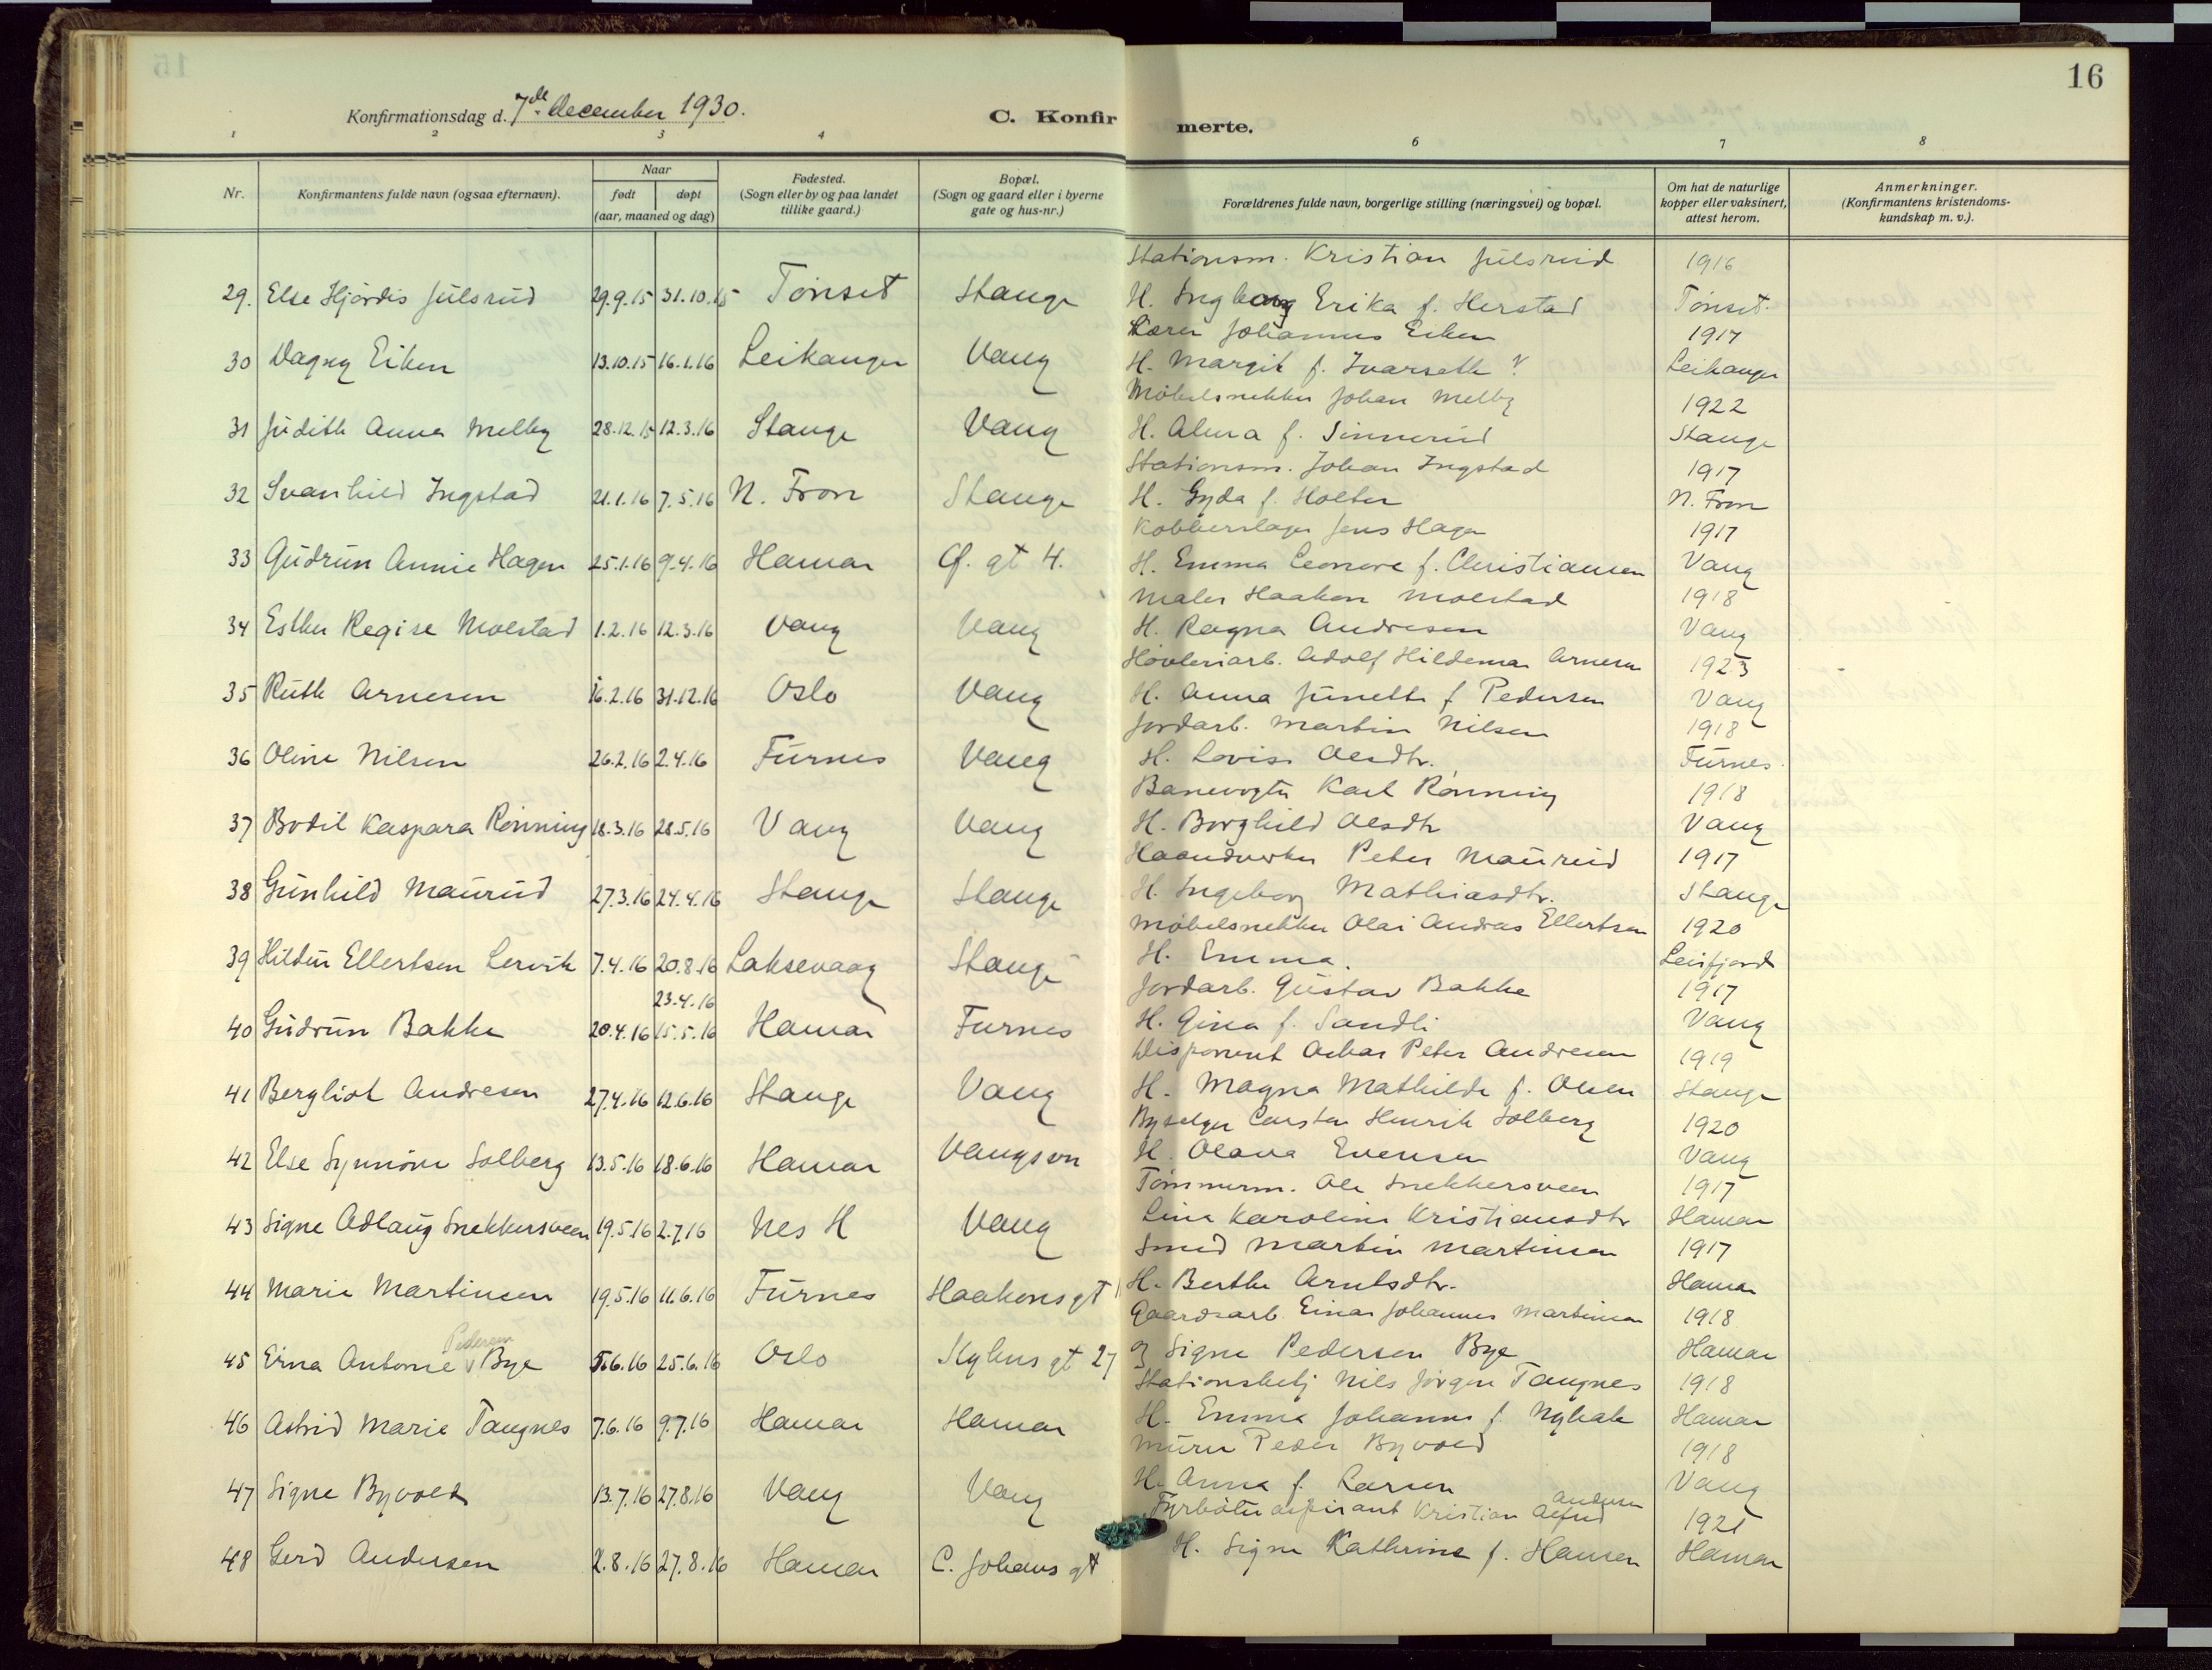 16
Konfirmationsdag d. 7de december 1930.
C. Konfirmerte.
1 2 3 4 6 7 8
Nr.
Konfirmantens fulde navn (ogsaa efternavn).
Naar
født døpt
(aar, maaned og dag)
Fødested.
(Sogn eller by og paa landet
tillike gaard.)
Bopæl.
(Sogn og gaard eller i byerne
gate og hus-nr.)
Forældrenes fulde navn, borgerlige stilling (næringsvei) og bopæl.
Om hat de naturlige
kopper eller vaksinert,
attest herom.
Anmerkninger.
(Konfirmantens kristendoms-
kundskap m. v.).
Stationsm. Kristian Julsrud 1916
29. Else Hjördis Julsrud 29.9.15 31.10.15 Tönset Stange H. Ingborg Erika f. Herstad Tönset.
Lærer Johannes Eiken 1917
30 Dagny Eiken 13.10.15 16.1.16 Leikanger Vang H. Margit f. Ivarseth ? Leikanger
Möbelsnekker Johan Melby 1922
31 Judith Anna Melby 28.12.15 12.3.16 Stange Vang H. Alma f. Sinnerud Stange
Stationsm. Johan Ingstad 1917
32 Svanhild Ingstad 21.1.16 7.5.16 N. Fron Stange H. Gyda f. Holter N. Fron
Kobberslager Jens Hagen 1917
33 Gudrun Annie Hagen 25.1.16 9.4.16 Hamar Gr. gt 4. H. Emma Leonore f. Christiansen Vang
Maler Haakon Moestad 1918
34 Esther Regise Moestad 1.2.16 12.3.16 Vang Vang H. Ragna Andresen Vang
Hövleriarb. Adolf Hildemar Arnesen 1923
35 Ruth Arnesen 16.2.16 31.12.16 Oslo Vang H. Anna Junette f Pedersen Vang
Jordarb. Martin Nilsen 1918
36 Oline Nilsen 26.2.16 2.4.16 Furnes Vang H. Lovise Olesdtr. Furnes.
Banevogter Karl Rönning 1918
37 Bodil Kaspara Rönning 18.3.16 28.5.16 Vang Vang H. Borghild Olsdtr Vang
Haandverker Peter Maurud 1917
38 Gunhild Maurud 27.3.16 24.4.16 Stange Stange H. Ingeborg Mathiasdtr. Stange
Möbelsnekker Olai Andreas Ellertsen 1920
39 Hildur Ellertsen Lervik 7.4.16 20.8.16 Laksevaag Stange H. Emma. Leirfjord
23.4.16 Jordarb. Gustav Bakke 1917
40 Gudrun Bakke 20.4.16 15.5.16 Hamar Furnes H. Gina f. Sandli Vang
Disponent Oskar Peter Andresen 1919
41 Bergliot Andresen 27.4.16 12.6.16 Stange Vang H. Magna Mathilde f. Olsen Stange
Byselger Carsten Henrik Solberg 1920
42 Else Synnöve Solberg 13.5.16 18.6.16 Hamar Vangsvn H. Olava Evensen Vang
Tömmerm. Ole Snekkersveen 1917
43 Signe Adlaug Snekkersveen 19.5.16 2.7.16 Nes H Vang Lina Karoline Kristiansdtr Hamar
Smed Martin Martinsen 1917
44 Marie Martinsen 19.5.16 11.6.16 Furnes Haakons gt H. Berthe Arntsdtr. Hamar
Gaardsarb. Einar Johannes Martinsen 1918
Pedersen
45 Erna Antonie v Bye 5.6.16 25.6.16 Oslo Skyhus gt 27 og Signe Pedersen Bye Hamar
Stationsbetj Nils Jörgen Tangnes 1918
46 Astrid Marie Tangnes 7.6.16 9.7.16 Hamar Hamar H. Emma Johanne f. Nybak Hamar
Murer Peder Byvold 1918
47 Signe Byvold 13.7.16 27.8.16 Vang Vang H. Anna f. Larsen Vang
Fyrböteraspirant Kristian Alfred Andersen 1921
48 Gerd Andersen 2.8.16 27.8.16 Hamar C. Johans gt H. Signe Kathrine f. Hansen Hamar